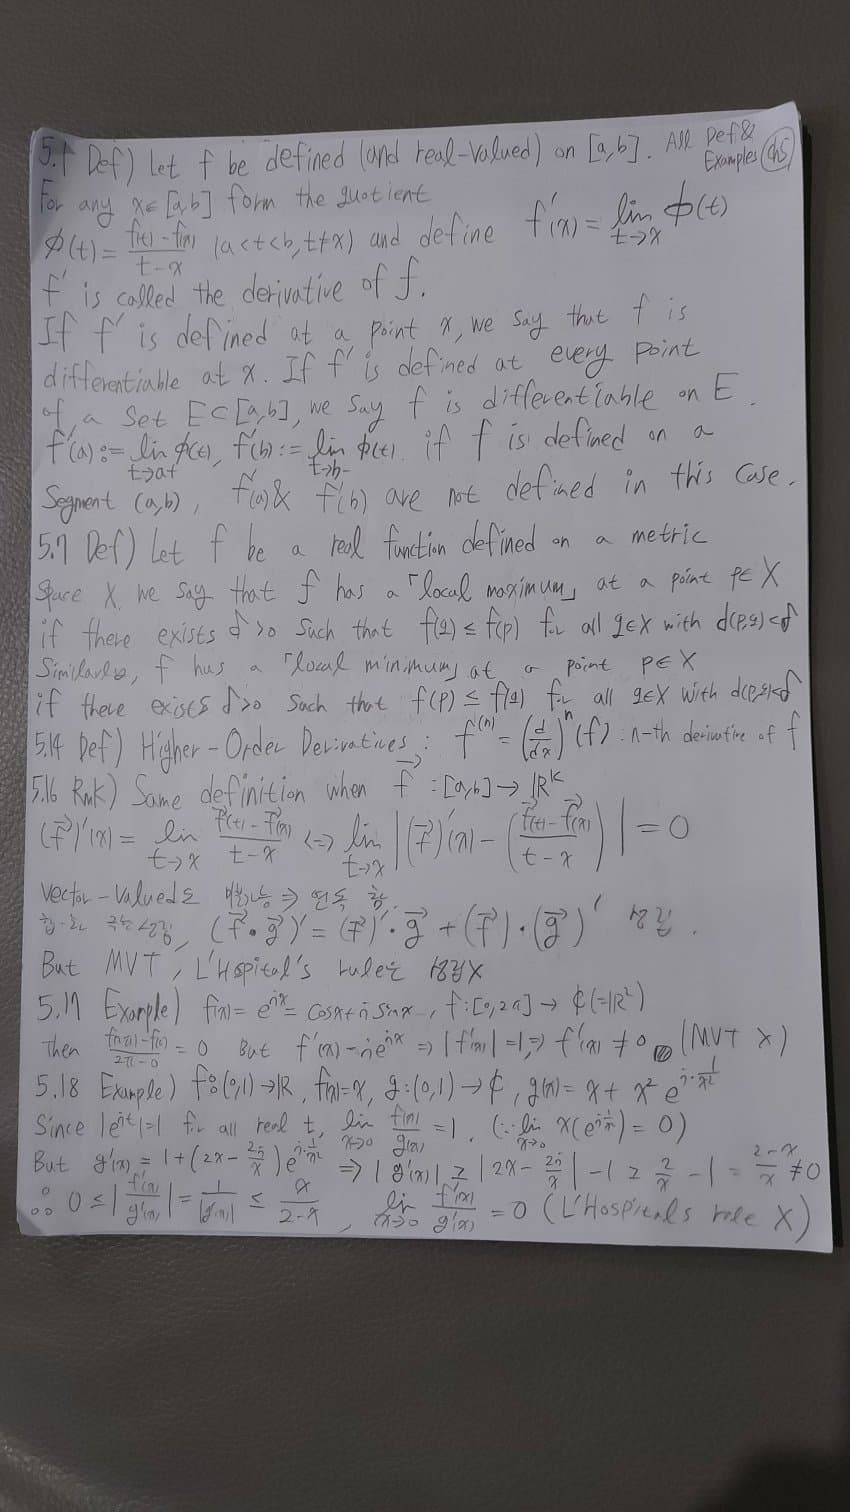 5.1 Def) Let f be defined (and real-valued) on [a,b]. All Def &
Examples Ch5
For any x∈[a,b] form the quotient
φ(t) = (f(t)-f(x))/(t-x) (a<t<b, t≠x) and define f'(x) = lim_{t→x} φ(t)
f' is called the derivative of f.
If f' is defined at a point x, we say that f is
differentiable at x. If f' is defined at every point
of a set E⊂[a,b], we say f is differentiable on E.
f'(a) := lim_{t→a+} φ(t), f'(b) := lim_{t→b-} φ(t). if f is defined on a
segment (a,b), f'(a) & f'(b) are not defined in this case.
5.7 Def) Let f be a real function defined on a metric
space X. We say that f has a 「local maximum」 at a point p∈X
if there exists δ>0 such that f(q) ≤ f(p) for all q∈X with d(p,q)<δ
Similarly, f has a 「local minimum」 at a point p∈X
if there exists δ>0 such that f(p) ≤ f(q) for all q∈X with d(p,q)<δ
5.14 Def) Higher-Order Derivatives : f^(n) = (d/dx)^n (f) : n-th derivative of f
5.16 Rmk) Same definition when f⃗ : [a,b] → ℝ^k
(f⃗)'(x) = lim_{t→x} (f⃗(t)-f⃗(x))/(t-x) <=> lim_{t→x} |(f⃗)'(x) - ((f⃗(t)-f⃗(x))/(t-x))| = 0
Vector-valued도 미분가능 ⇒ 연속 함.
성립, (f⃗·g⃗)' = (f⃗)'·g⃗ + (f⃗)·(g⃗)' 성립.
But MVT, L'Hospital's rule은 성립X
5.17 Example) f(x) = e^{ix} = cosx + i sinx, f:[0,2π] → ℂ(=ℝ²)
Then (f(2π)-f(0))/(2π-0) = 0 But f'(x) = ie^{ix} ⇒ |f'(x)| = 1, ⇒ f'(x) ≠ 0 (MVT X)
5.18 Example) f:(0,1)→ℝ, f(x)=x, g:(0,1)→ℂ, g(x) = x + x² e^{i·1/x²}
Since |e^{it}|=1 for all real t, lim_{x→0} f(x)/g(x) = 1. (∵ lim_{x→0} x(e^{i 1/x²}) = 0)
But g'(x) = 1+(2x - 2i/x)e^{i·1/x²} ⇒ |g'(x)| ≥ |2x - 2i/x| -1 ≥ 2/x - 1 = (2-x)/x ≠ 0
∴ 0 ≤ |f'(x)/g'(x)| = 1/|g'(x)| ≤ x/(2-x), lim_{x→0} f'(x)/g'(x) = 0 (L'Hospital's rule X)